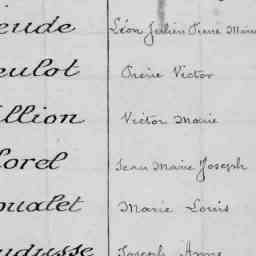 eude Léon Julien Pierre Marie
eulot Pierre Victor
llion Victor Marie
orel Jean Marie Joseph
oualet Marie Louis
udusse Joseph Anne